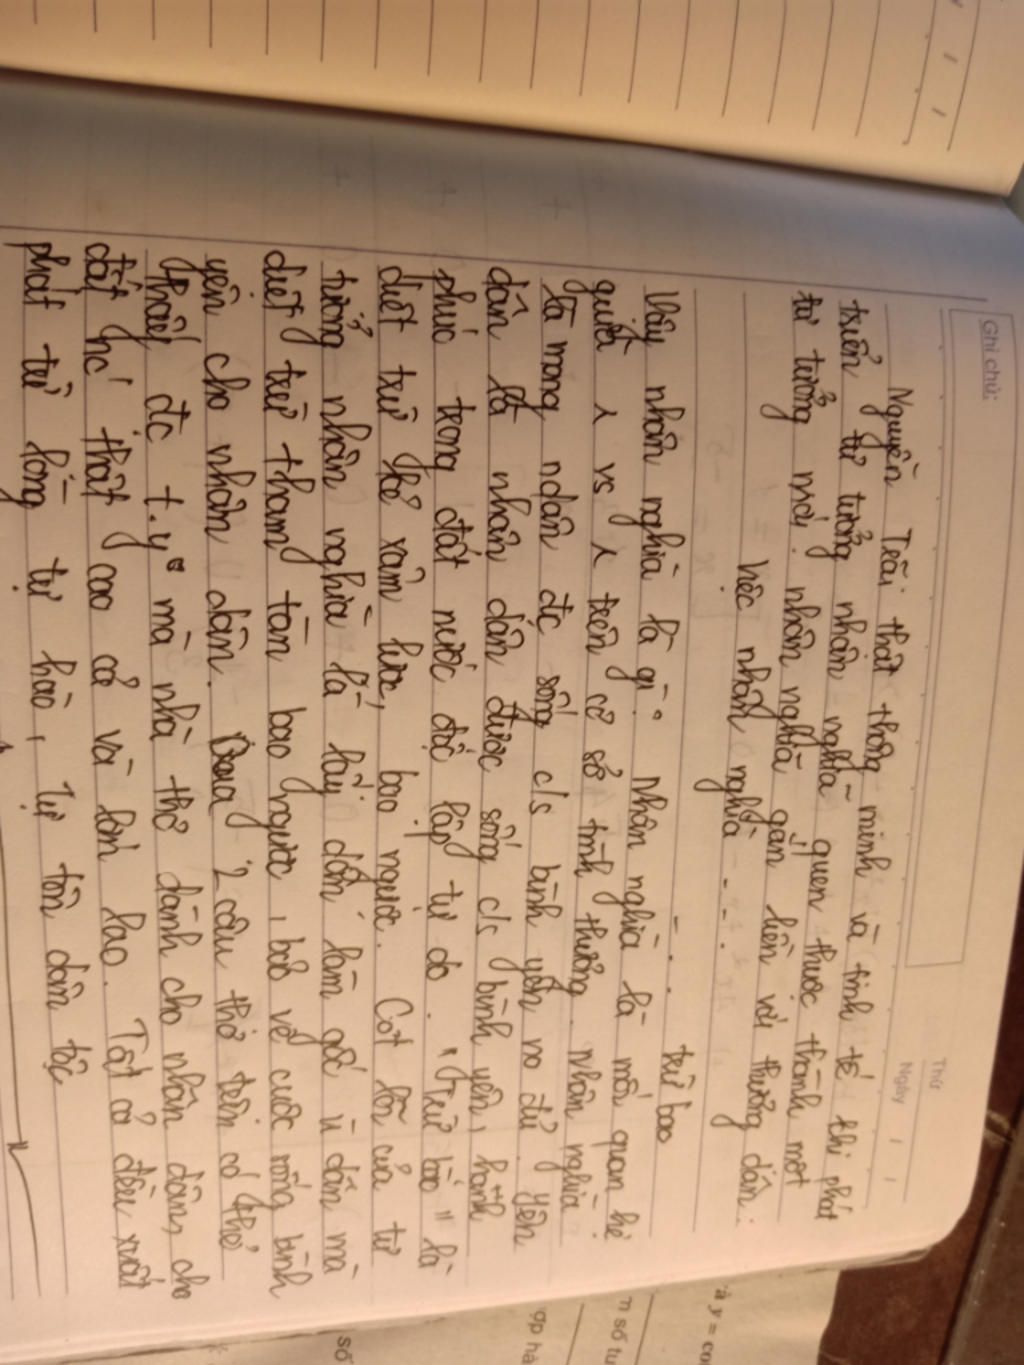 Ghi chú:
Thứ
Ngày / /
Nguyễn Trãi thật thông minh và tinh tế khi phát
triển tư tưởng nhân nghĩa quen thuộc thành một
tư tưởng mới: nhân nghĩa gắn liền với thương dân:
Việc nhân nghĩa - - -
- . . . trừ bạo
Vậy nhân nghĩa là gì? Nhân nghĩa là mối quan hệ
giữa λ vs λ trên cơ sở tình thương. Nhân nghĩa
là mong ndân đc sống c/s bình yên no đủ. yên
dân là nhân dân được sống c/s bình yên, hạnh
phúc trong đất nước độc lập tự do. "Trừ bạo" là
diệt trừ kẻ xâm lược, bạo ngược. Cốt lõi của tư
tưởng nhân nghĩa là lấy dân làm gốc vì dân mà
diệt trừ tham tàn bạo ngược, bảo vệ cuộc sống bình
yên cho nhân dân. Qua 2 câu thơ trên có thể
thấy đc t.y mà nhà thơ dành cho nhân dân, cho
đất nc thật cao cả và lớn lao. Tất cả đều xuất
phát từ lòng tự hào, tự tôn dân tộc
à y = co
n số tu
gp hà
số